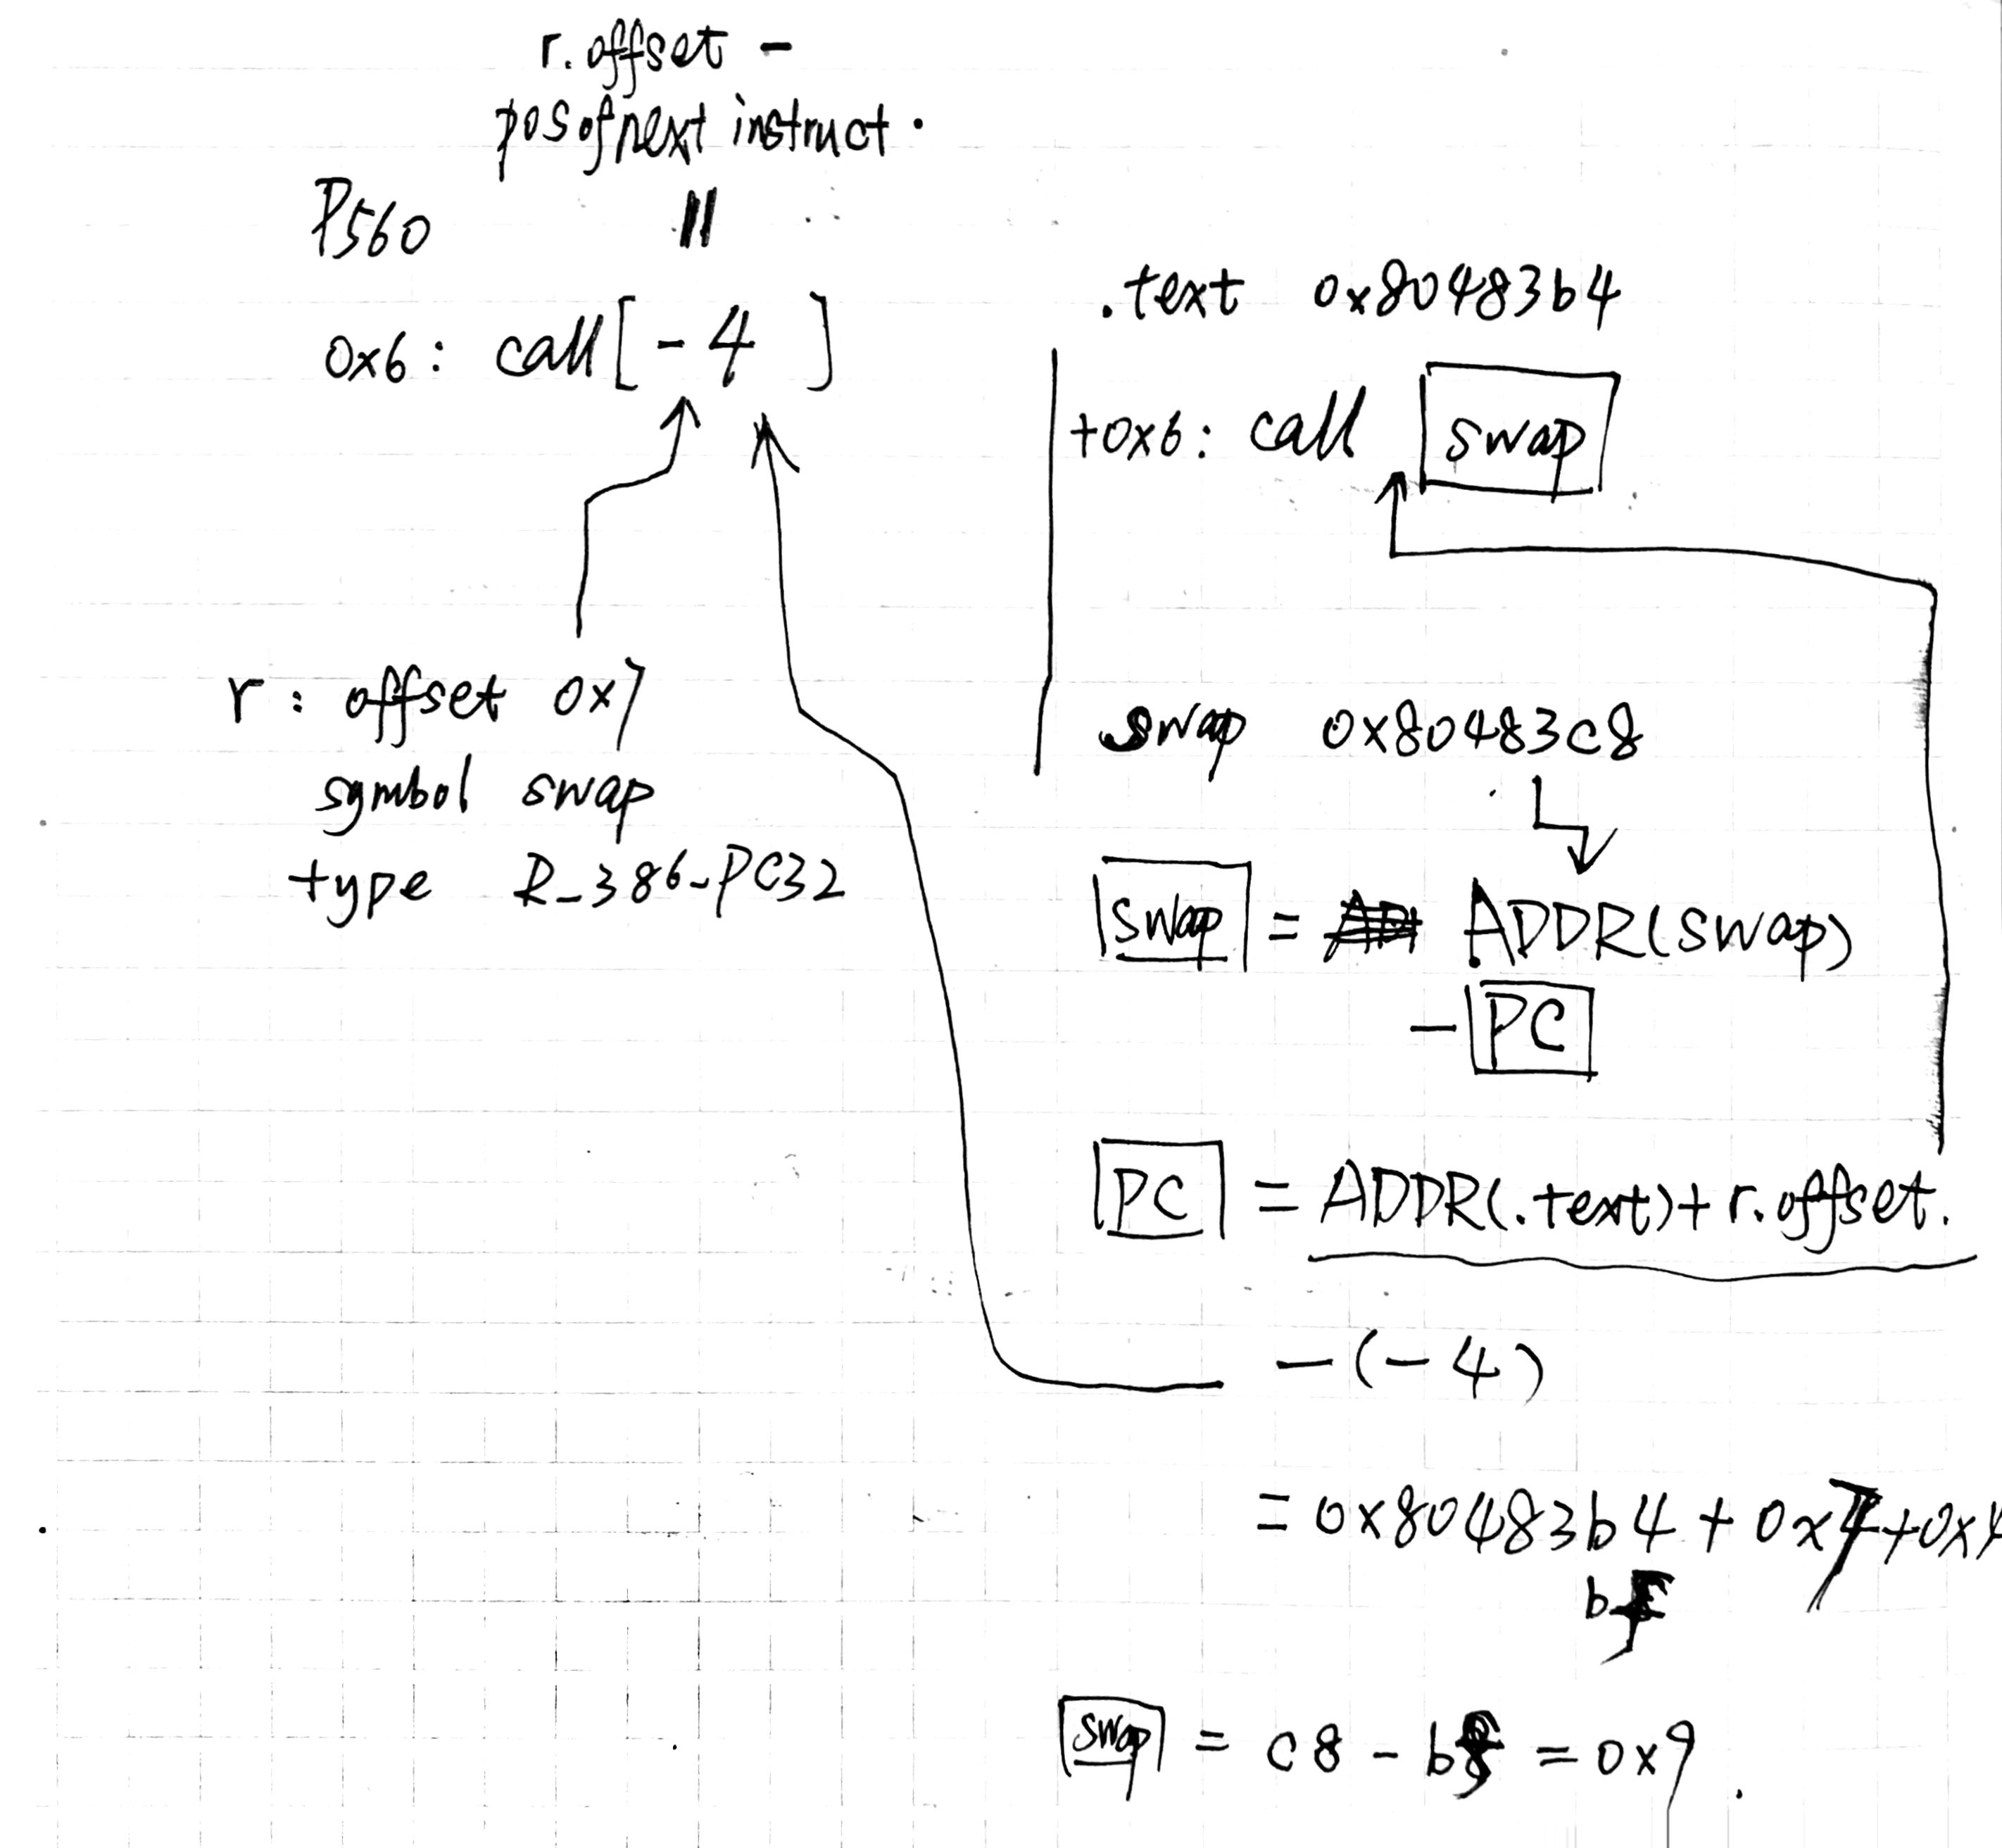 r. offset -
pos of next instruct.
P560 ||
0x6: call [ - 4 ]
r: offset 0x7
symbol swap
type R_386_PC32
.text 0x80483b4
+0x6: call swap
swap 0x80483c8
swap = ADDR(swap)
- PC
PC = ADDR(.text) + r. offset.
- (- 4)
= 0x80483b4 + 0x7 + 0x4
bf
swap = c8 - bf = 0x9.